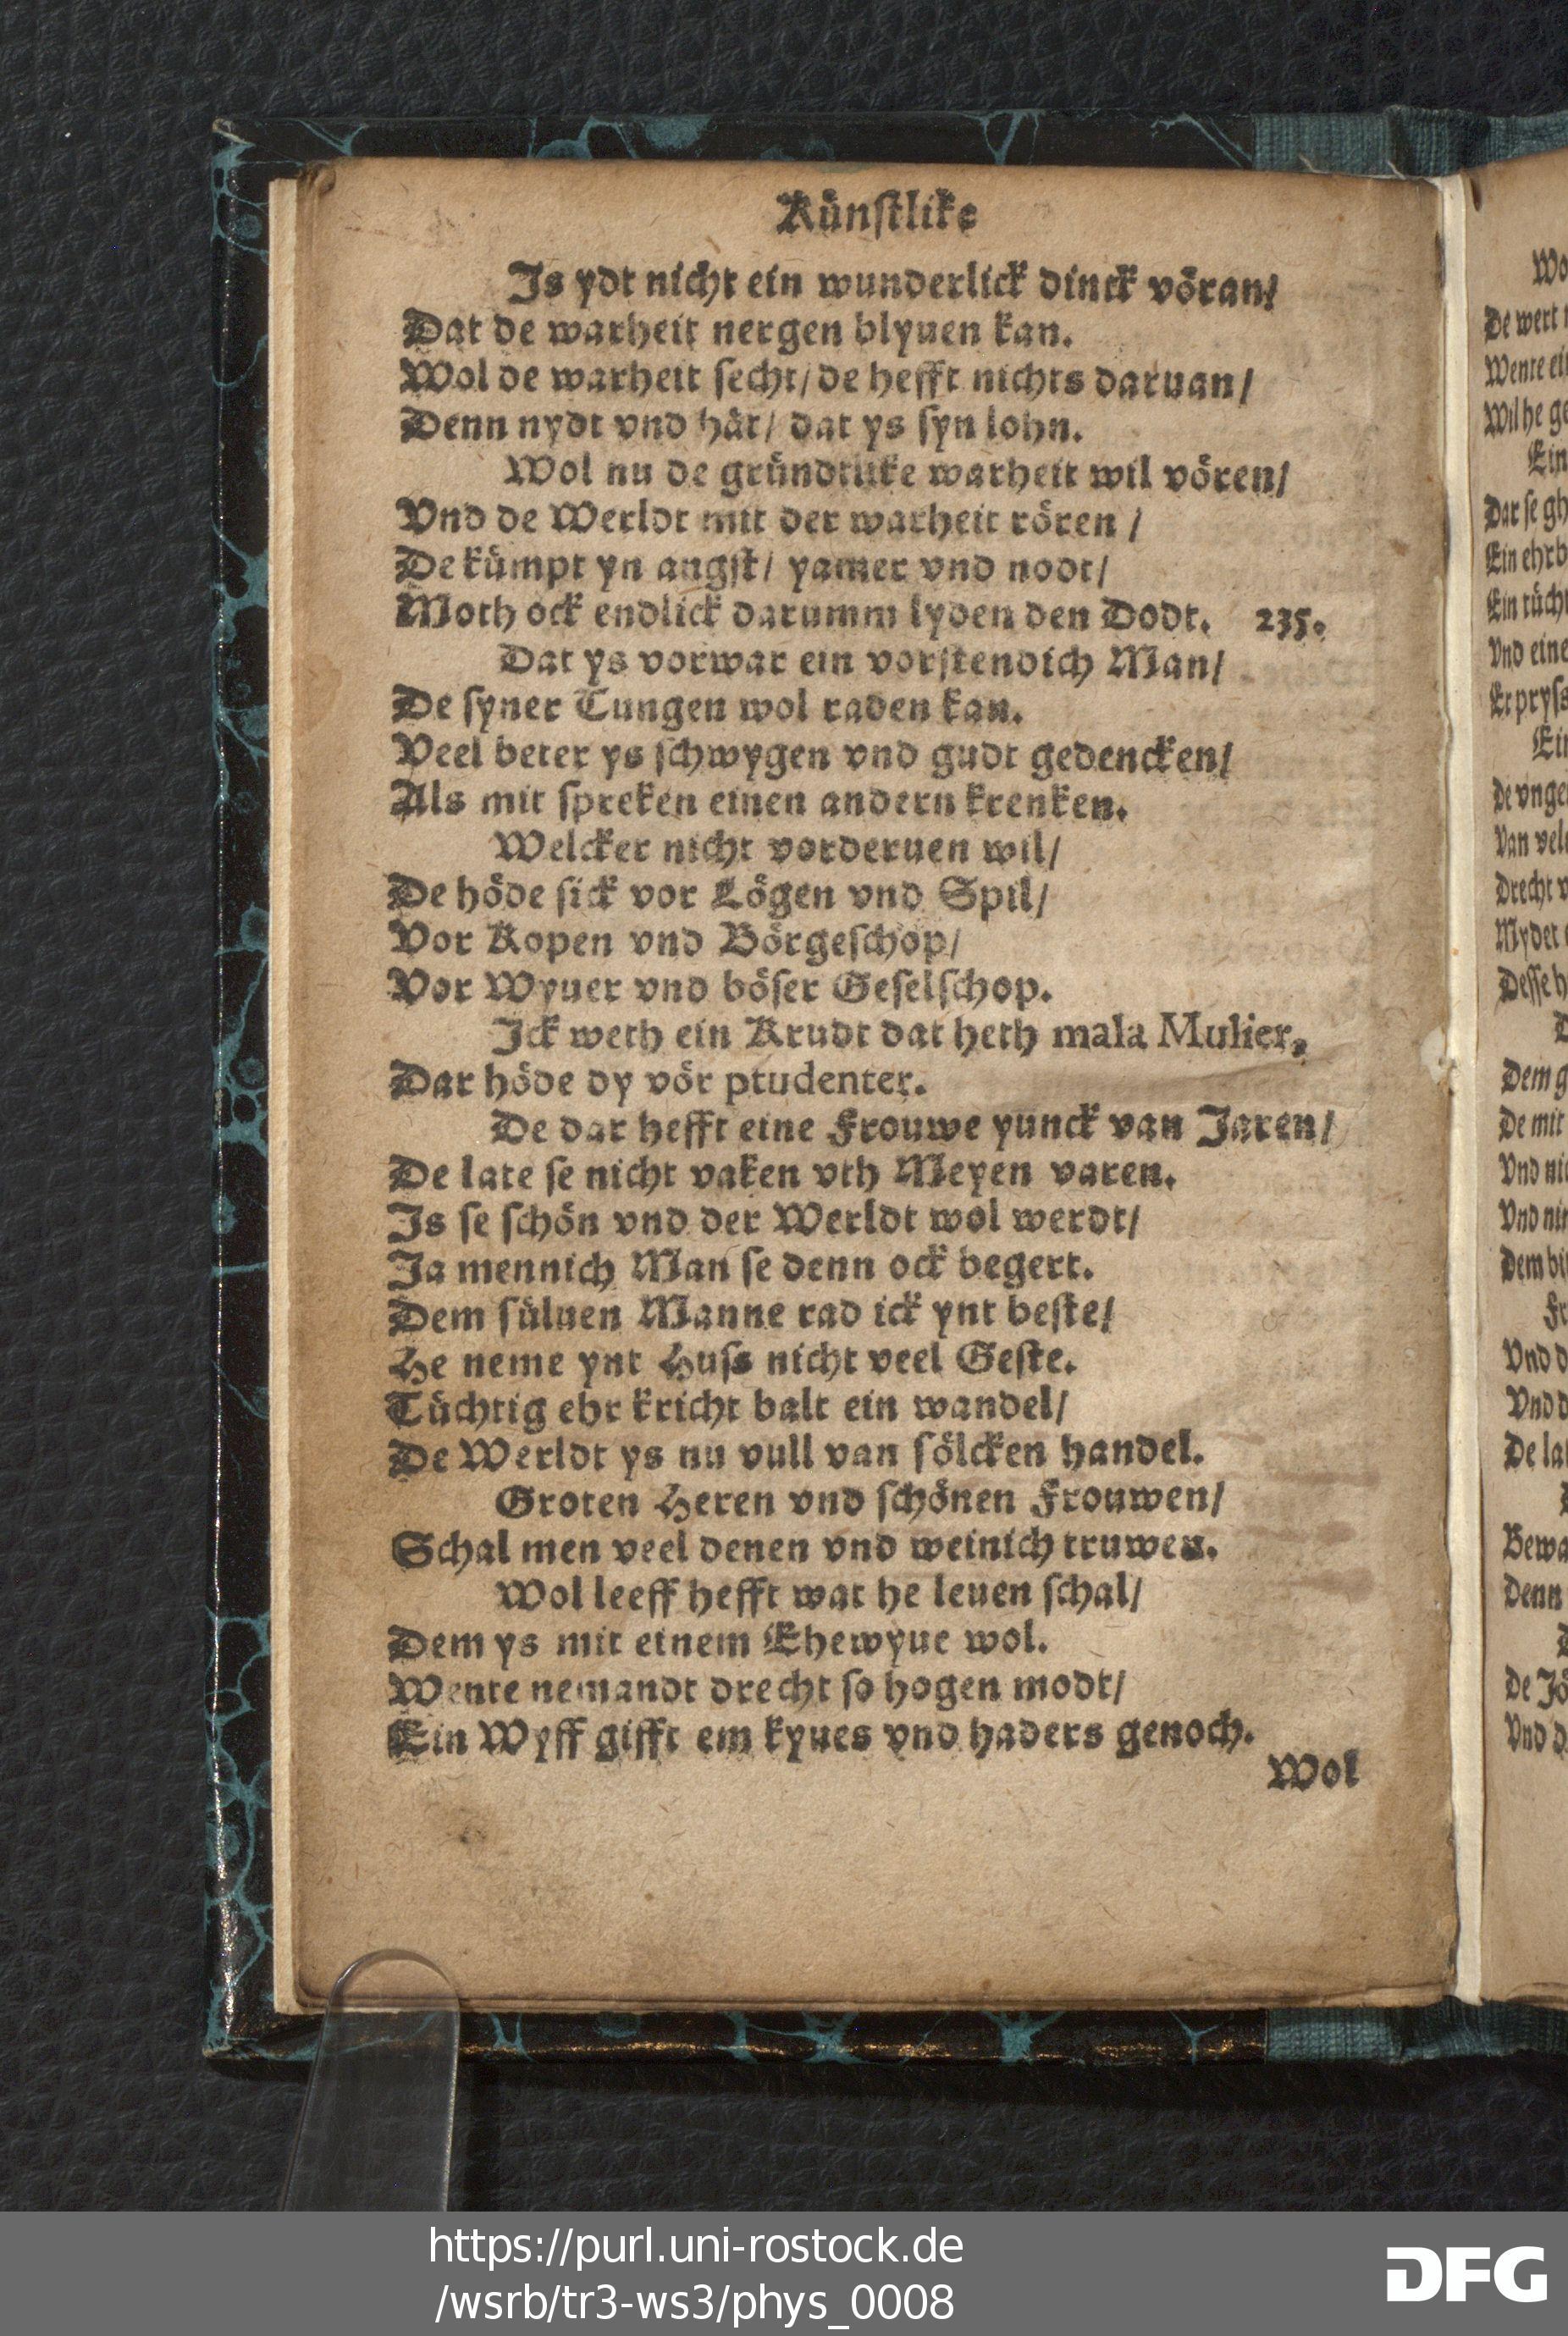 Künſtlike
Is ydt nicht ein wunderlick dinck vöran/
Dat de warheit nergen blyuen kan.
Wol de warheit ſecht/ de hefft nichts daruan/
Denn nydt vnd hät/ dat ys ſyn lohn.
Wol nu de gründtlike warheit wil vören/
Vnd de Werldt mit der warheit rören /
De kümpt yn angſt/ yamer vnd nodt/
Moth ock endlick darumm lyden den Dodt. 235.
Dat ys vorwar ein vorſtendich Man/
De ſyner Tungen wol raden kan.
Veel beter ys ſchwygen vnd gudt gedencken/
Als mit ſpreken einen andern krenken.
Welcker nicht vorderuen wil/
De höde ſick vor Lögen vnd Spil/
Vor Kopen vnd Börgeſchop/
Vor Wyuer vnd böſer Geſelſchop.
Ick weth ein Krudt dat heth mala Mulier,
Dar höde dy vör prudenter.
De dar hefft eine Frouwe yunck van Jaren/
De late ſe nicht vaken vth Meyen varen.
Is ſe ſchön vnd der Werldt wol werdt/
Ja mennich Man ſe denn ock begert.
Dem ſüluen Manne rad ick ynt beſte/
He neme ynt Huſs nicht veel Geſte.
Tüchtig ehr kricht balt ein wandel/
De Werldt ys nu vull van ſölcken handel.
Groten Heren vnd ſchönen Frouwen/
Schal men veel denen vnd weinich truwen.
Wol leeff hefft wat he leuen ſchal/
Dem ys mit einem Ehewyue wol.
Wente nemandt drecht ſo hogen modt/
Ein Wyff gifft em kyues vnd haders genoch.
Wol
Wo
De wert
Wente ei
Wil he ge
Ein
Dar ſe gh
Ein ehrb
Ein tücht
Vnd eine
Er pryſs
Ein
De vnge
Van vel
Drecht v
Mydet
Deſſe h
D
Dem g
De mit
Vnd ni
Vnd nir
Dem bi
Fr
Vnd d
Vnd d
De la
Bewa
Denn
D
De Jö
Vnd d
https://purl.uni-rostock.de
/wsrb/tr3-ws3/phys_0008
DFG